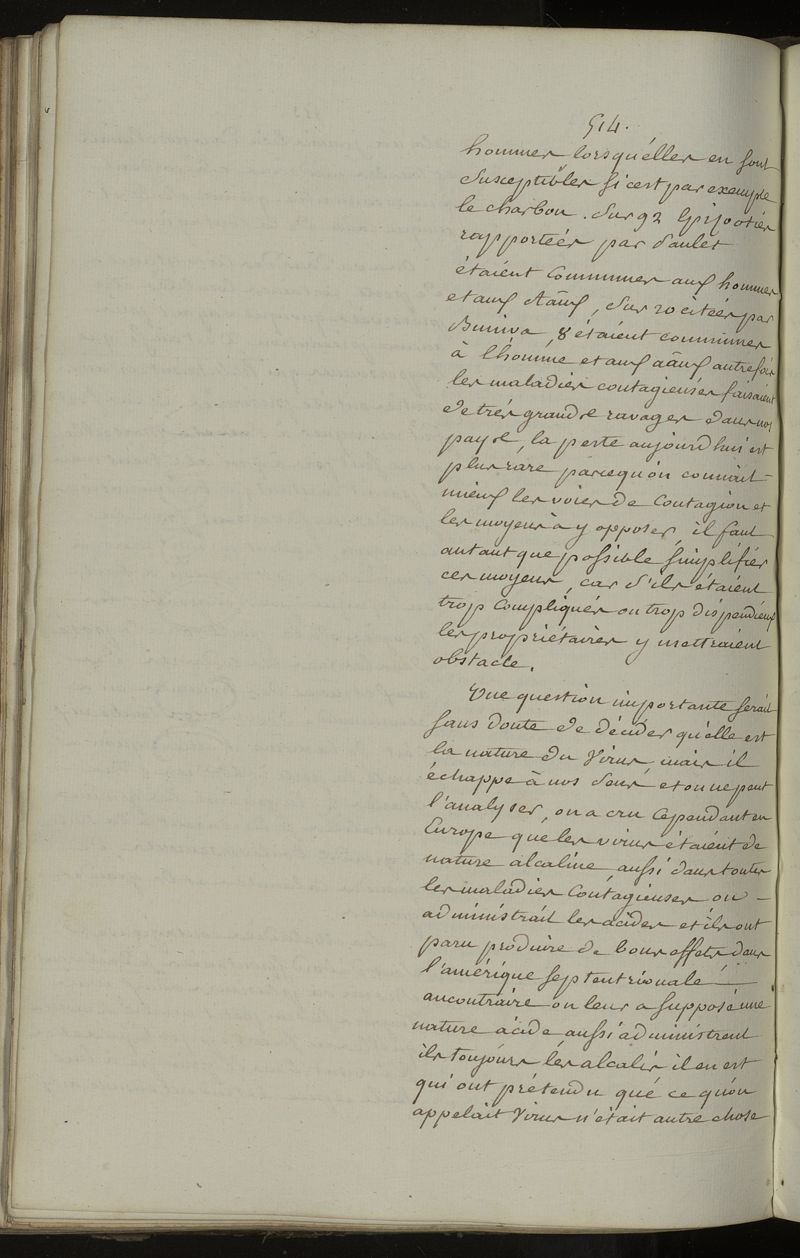 514.
hommes lorsqu'élles en sont
susceptibles si c'est par exemple
le charbon. Sur 92 Epizooties
rapporteés par Paulet
étaient Communes aux hommes
et aux aāux, Sur 20 citeés par
Buniva, 8 étaient communes
à l'hómme et aux aāux autrefois
les maladies contagieuses faisaient
de trés grands ravages dans nos
pays, la peste aujourd'hui est
plus rare parcequ'on connait
mieux les voies de Contagion et
les moyens à y opposer, il faut
autant que possible simplifiér
ces moyens, car s'ils étaient
trop Compliqués ou trop dispendieux
les propriétaires y mettraient
obstacle.
Une question importante serait
sans doute de décider qu'elle est
la nature du Virus mais il
échappe à nos sens et on ne peut
l'analyser, on a cru cependant en
Europe que les virus étaient de
nature alcaline aussi dans toutes
les maladies Contagieuses on
administrait les acides et ils ont
paru produire de bons effets dans
l'amérique septentrionale
aucontraire on leur a supposé une
nature acide aussi administrent
ils toujours les alcalis il en est
qui ont prétendu que ce qu'on
appelait Virus n'était autre chose